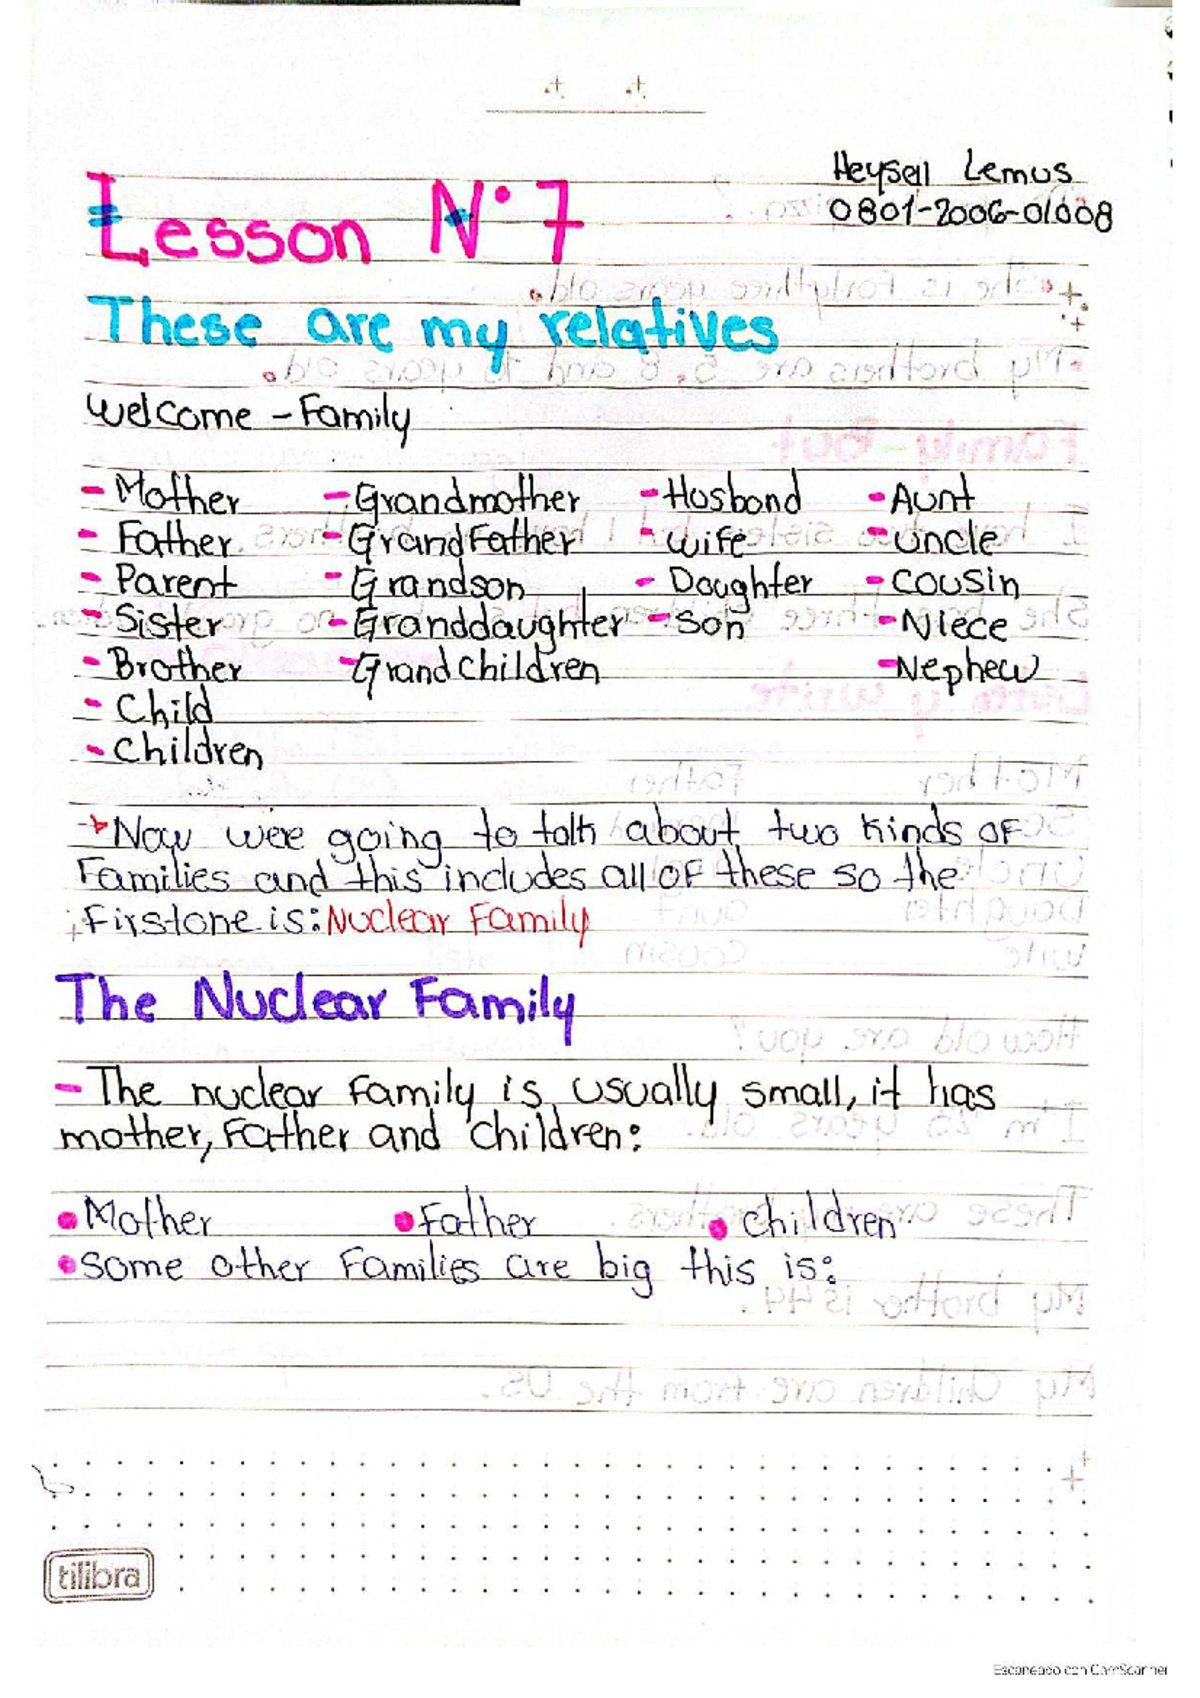 Heysell Lemus
0801-2006-01008
Lesson N° 7
These are my relatives
Welcome - Family
- Mother - Grandmother - Husbond - Aunt
- Father - GrandFather - wife - uncle
- Parent - Grandson - Doughter - cousin
- Sister - Granddaughter - son - Niece
- Brother - Grandchildren - Nephew
- Child
- Children
Now were going to talk about two kinds of
Families and this includes all of these so the
Firstone is: Nuclear Family
The Nuclear Family
- The nuclear family is usually small, it has
mother, Father and children:
• Mother • Father • children
• some other Families are big this is:
tilibra
Escaneado con CamScanner